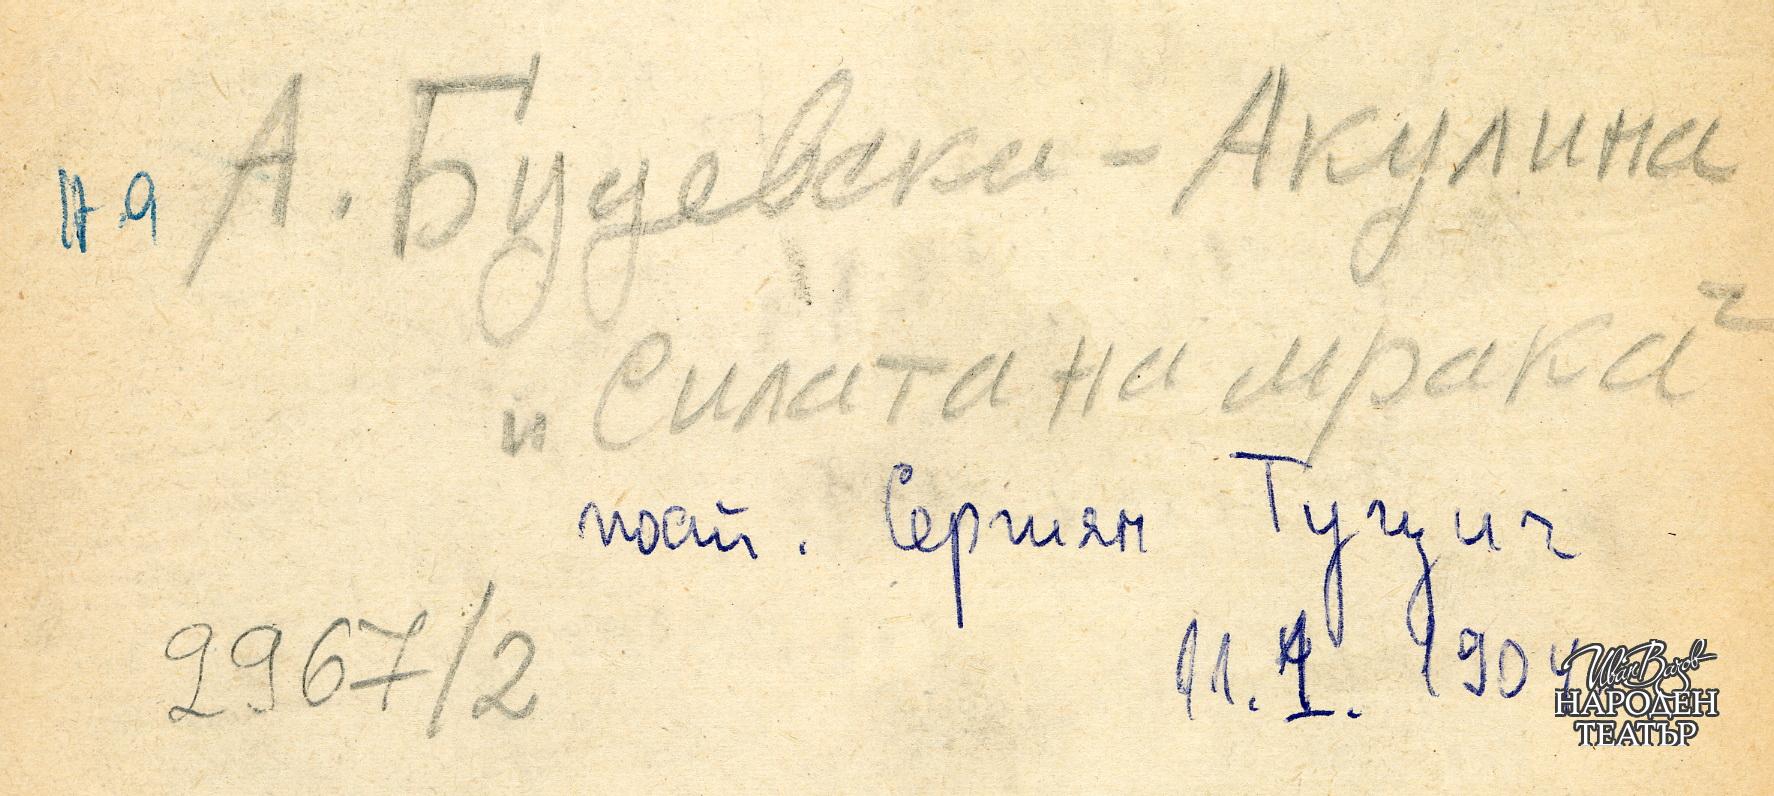 А. Будевска - Акулина
"Силата на мрака"
пост. Сергиян Туцич
2967/2
11.I. 1904
Иван Вазов
НАРОДЕН
ТЕАТЪР